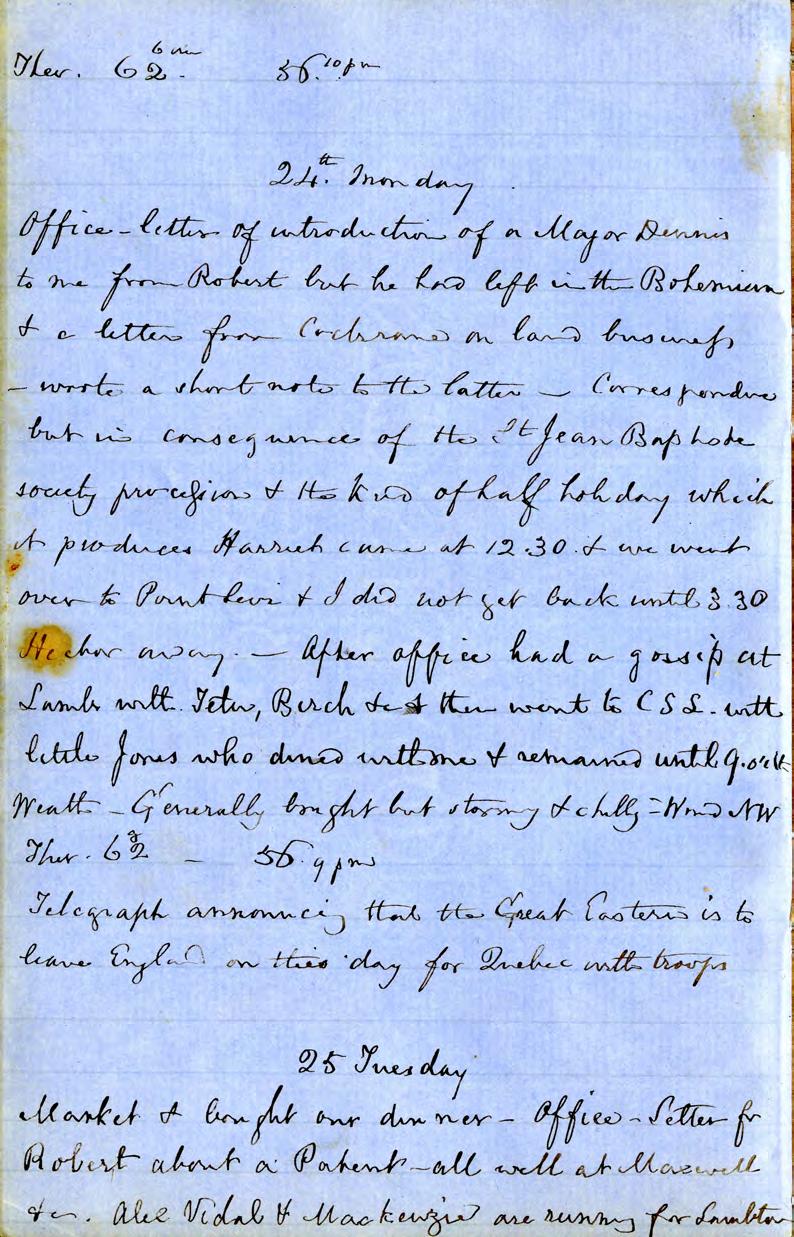 Ther. 62. 6 am 56. 10 pm
24th. Monday
Office - letter of introduction of a Major Dennis
to me from Robert but he had left in the Bohemian
& a letter from Cochrane on land business
- wrote a short note to the latter - Correspondence
but in consequence of the St Jean Baptiste
society procession & the kind of half holiday which
it produces Harriet came at 12.30. & we went
over to Point Levi & I did not get back until 3.30
Hector away. - After office had a gossip at
Lambs with Tetu, Birch &c & then went to C S L. with
little Jones who dined with me & remained until 9.o'clk
Weath - Generally bright but stormy & chilly - Wind NW
Ther. 62 - 56. 9 pm
Telegraph announcing that the Great Eastern is to
leave England on this day for Quebec with troops
25 Tuesday
Market & bought our dinner - Office - Letter fr
Robert about a Patent - all well at Maxwell
&c. Alex Vidal & Mackenzie are running for Lambton